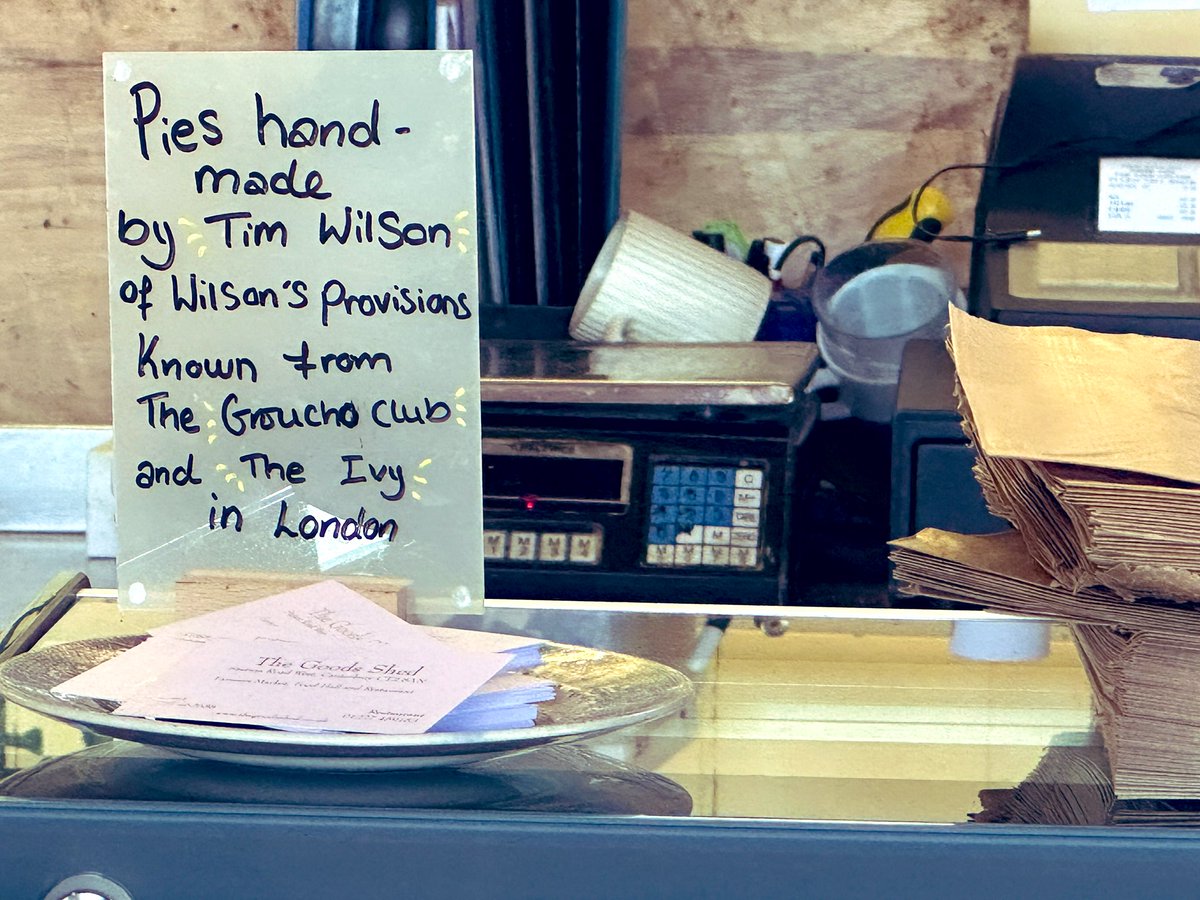 Pies hand-
made
by Tim Wilson
of Wilson's Provisions
Known from
The Groucho Club
and The Ivy
in London
The Goods Shed
Station Road West, Canterbury CT2 8AN
Farmers Market, Food Hall and Restaurant
Restaurant